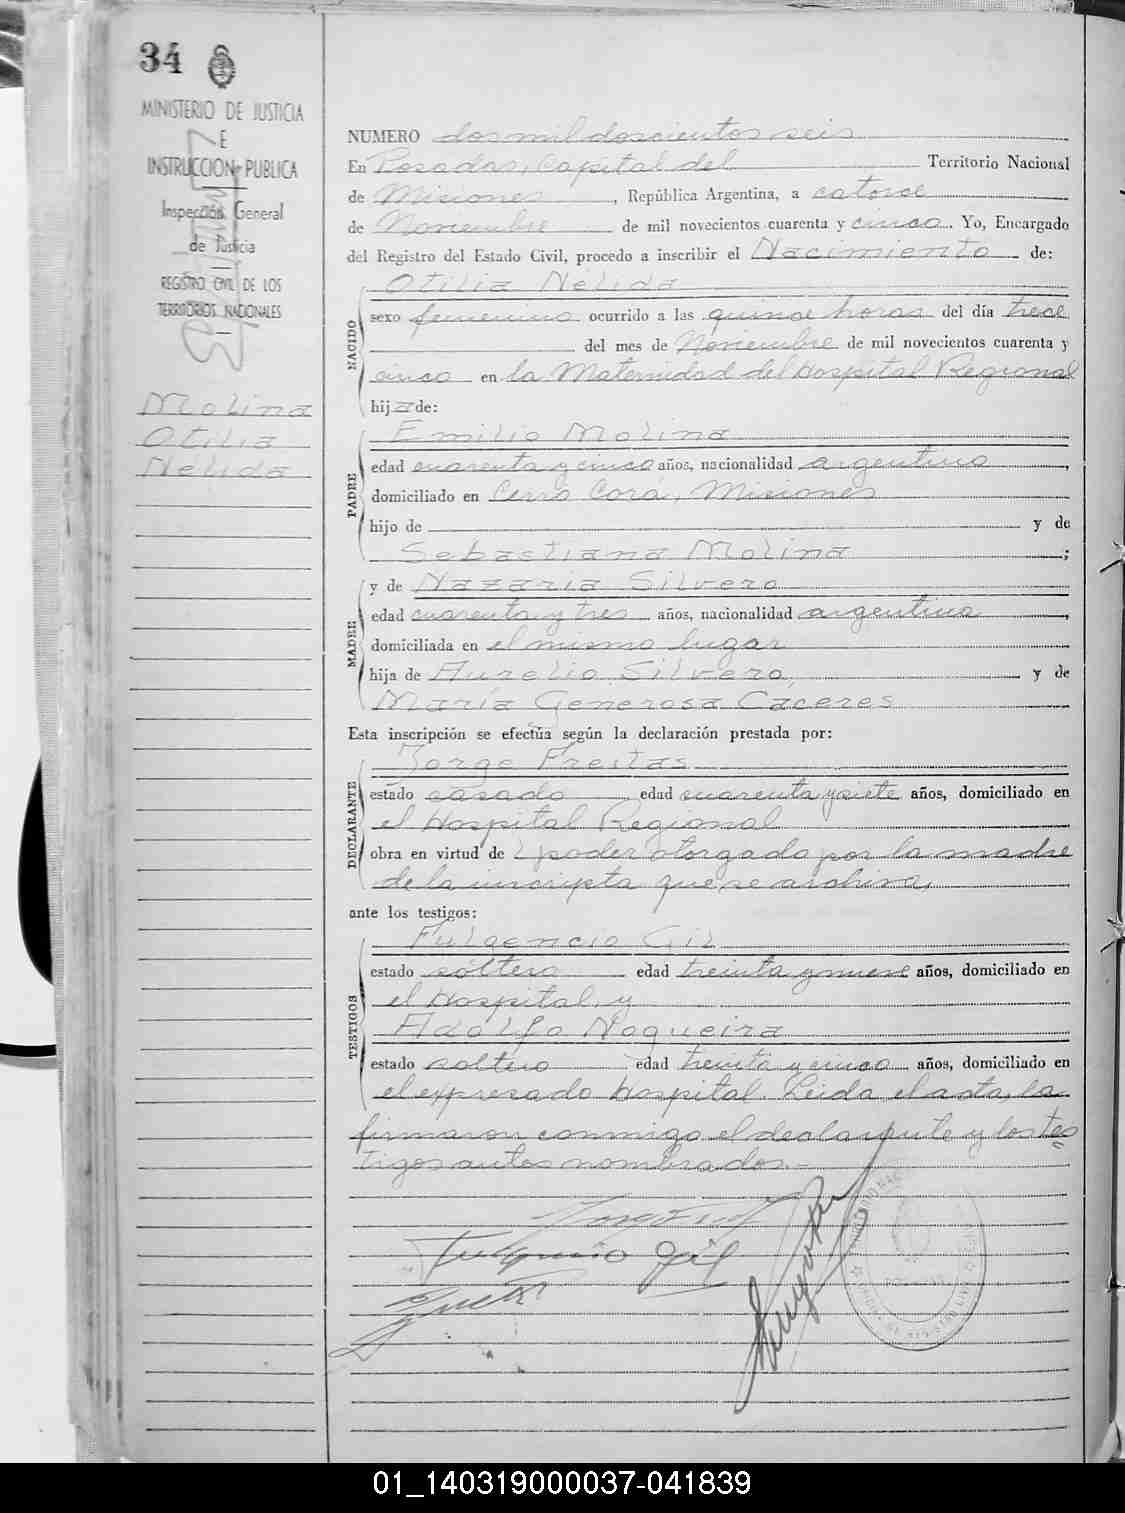 34
MINISTERIO DE JUSTICIA
E
INSTRUCCION PUBLICA
Inspección General
de Justicia
REGISTRO CIVIL DE LOS
TERRITORIOS NACIONALES
Molina
Otilia
Nélida
NUMERO dos mil doscientos seis
En Posadas, Capital del Territorio Nacional
de Misiones, República Argentina, a catorce
de Noviembre de mil novecientos cuarenta y cinco. Yo, Encargado
del Registro del Estado Civil, procedo a inscribir el Nacimiento de:
NACIDO
Otilia Nélida
sexo femenino ocurrido a las quince horas del día trece
del mes de Noviembre de mil novecientos cuarenta y
cinco en la Maternidad del Hospital Regional
hija de:
PADRE
Emilio Molina
edad cuarenta y cinco años, nacionalidad argentino,
domiciliado en Cerro Corá, Misiones
hijo de y de
Sebastiana Molina;
MADRE
y de Nazaria Silvero
edad cuarenta y tres años, nacionalidad argentina,
domiciliada en el mismo lugar
hija de Aurelio Silvero, y de
María Generosa Caceres
Esta inscripción se efectúa según la declaración prestada por:
DECLARANTE
Jorge Freitas
estado casado edad cuarenta y siete años, domiciliado en
el Hospital Regional
obra en virtud de poder otorgado por la madre
de la inscripta que se archiva,
ante los testigos:
TESTIGOS
Fulgencio Gil
estado soltero edad treinta y nueve años, domiciliado en
el Hospital, y
Adolfo Nogueira
estado soltero edad treinta y cinco años, domiciliado en
el expresado Hospital. Leida el acta, la
firmaron conmigo el declarante y los tes
tigos antes nombrados.-
Fulgencio Gil
01_140319000037-041839